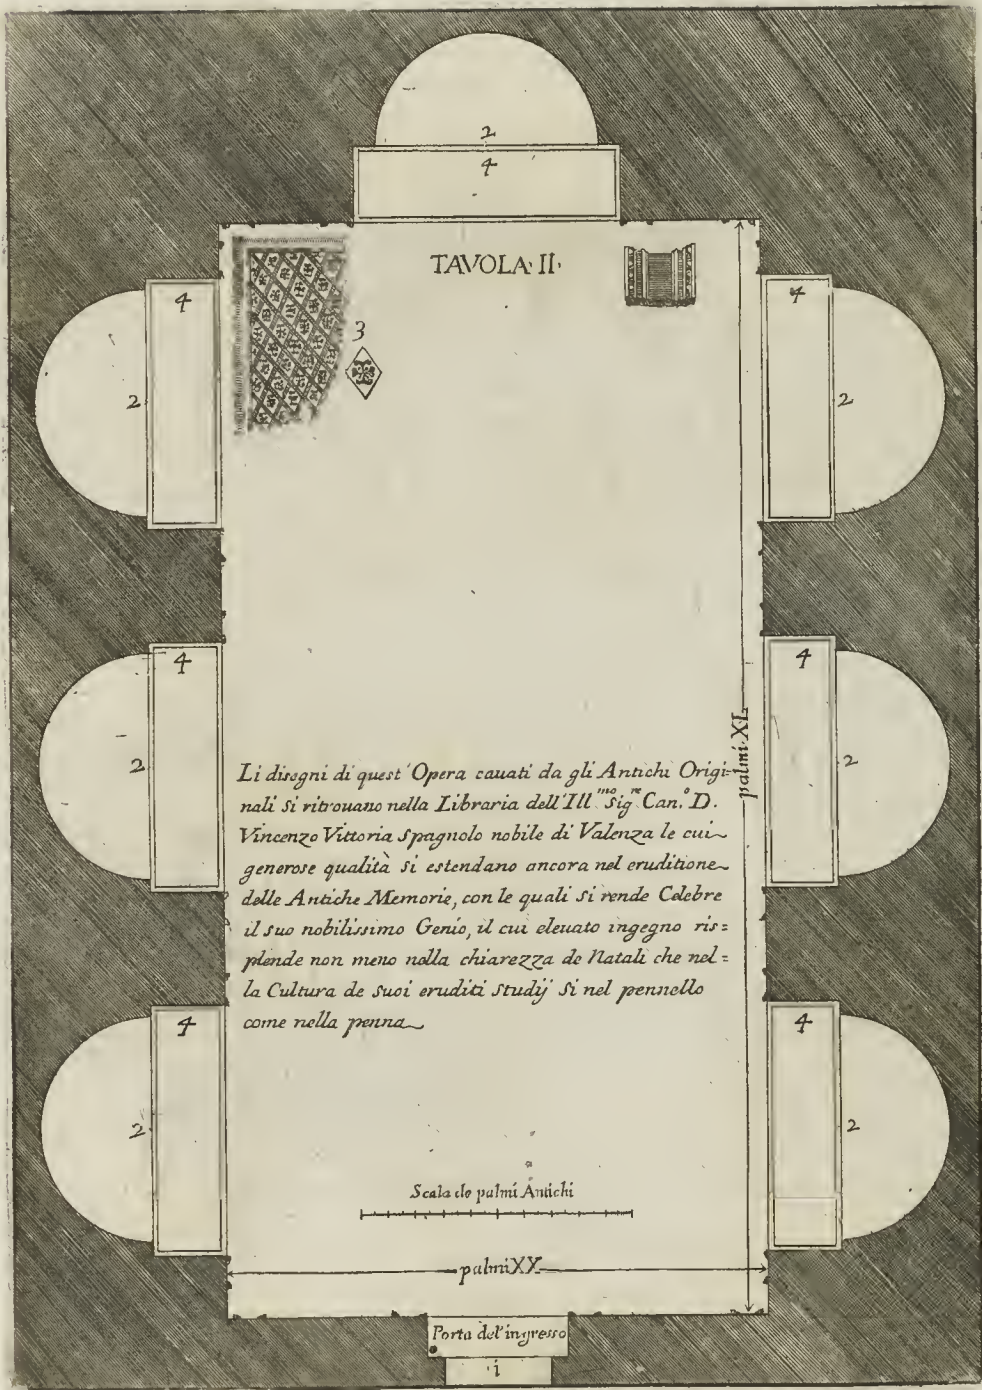 2
4
TAVOLA· II·
4
4
3
2
2
4
4
2
2
palmi·XL
Li disegni di quest'Opera cauati da gli Antichi Origi=
nali si ritrouano nella Libraria dell'Ill.mo Sig.re Can.o D.
Vincenzo Vittoria Spagnolo nobile di Valenza le cui
generose qualità si estendano ancora nel eruditione
delle Antiche Memorie, con le quali si rende Celebre
il suo nobilissimo Genio, il cui eleuato ingegno ris=
plende non meno nella chiarezza de Natali che nel=
la Cultura de suoi eruditi studij si nel pennello
come nella penna
4
4
2
2
Scala de palmi Antichi
palmi XX
Porta del'ingresso
i